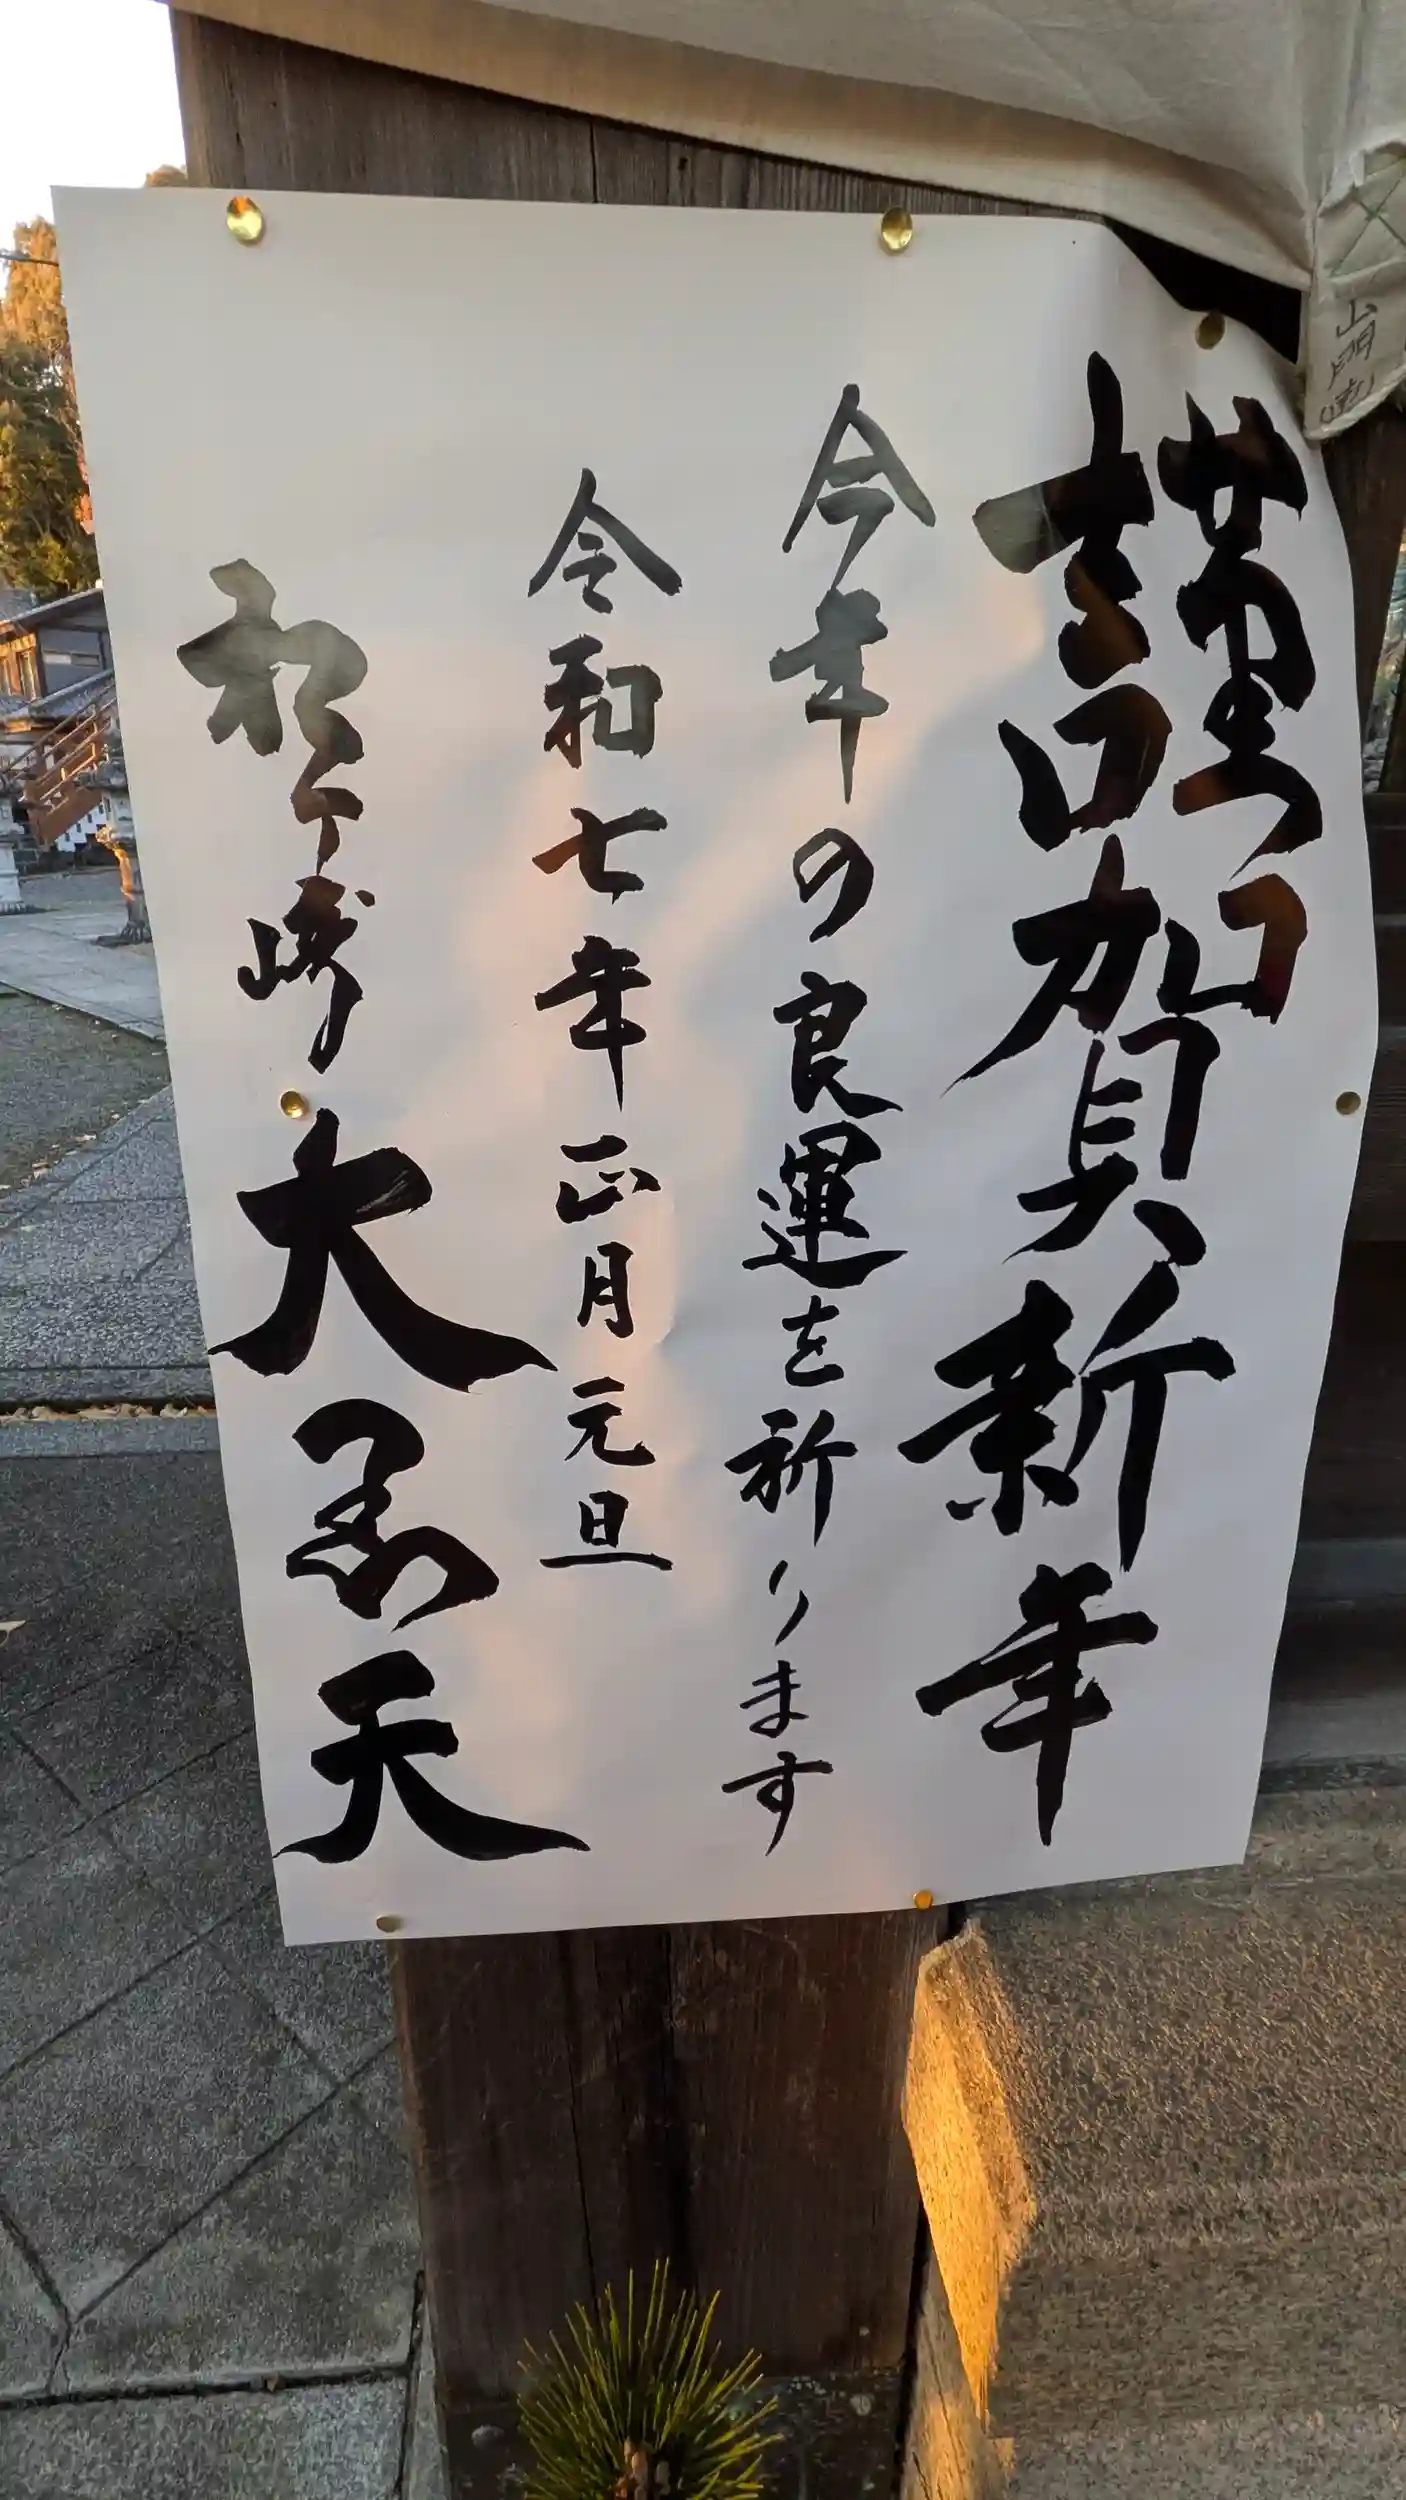 山門
謹賀新年
今年の良運を祈ります
令和七年正月元旦
松ヶ崎大黒天